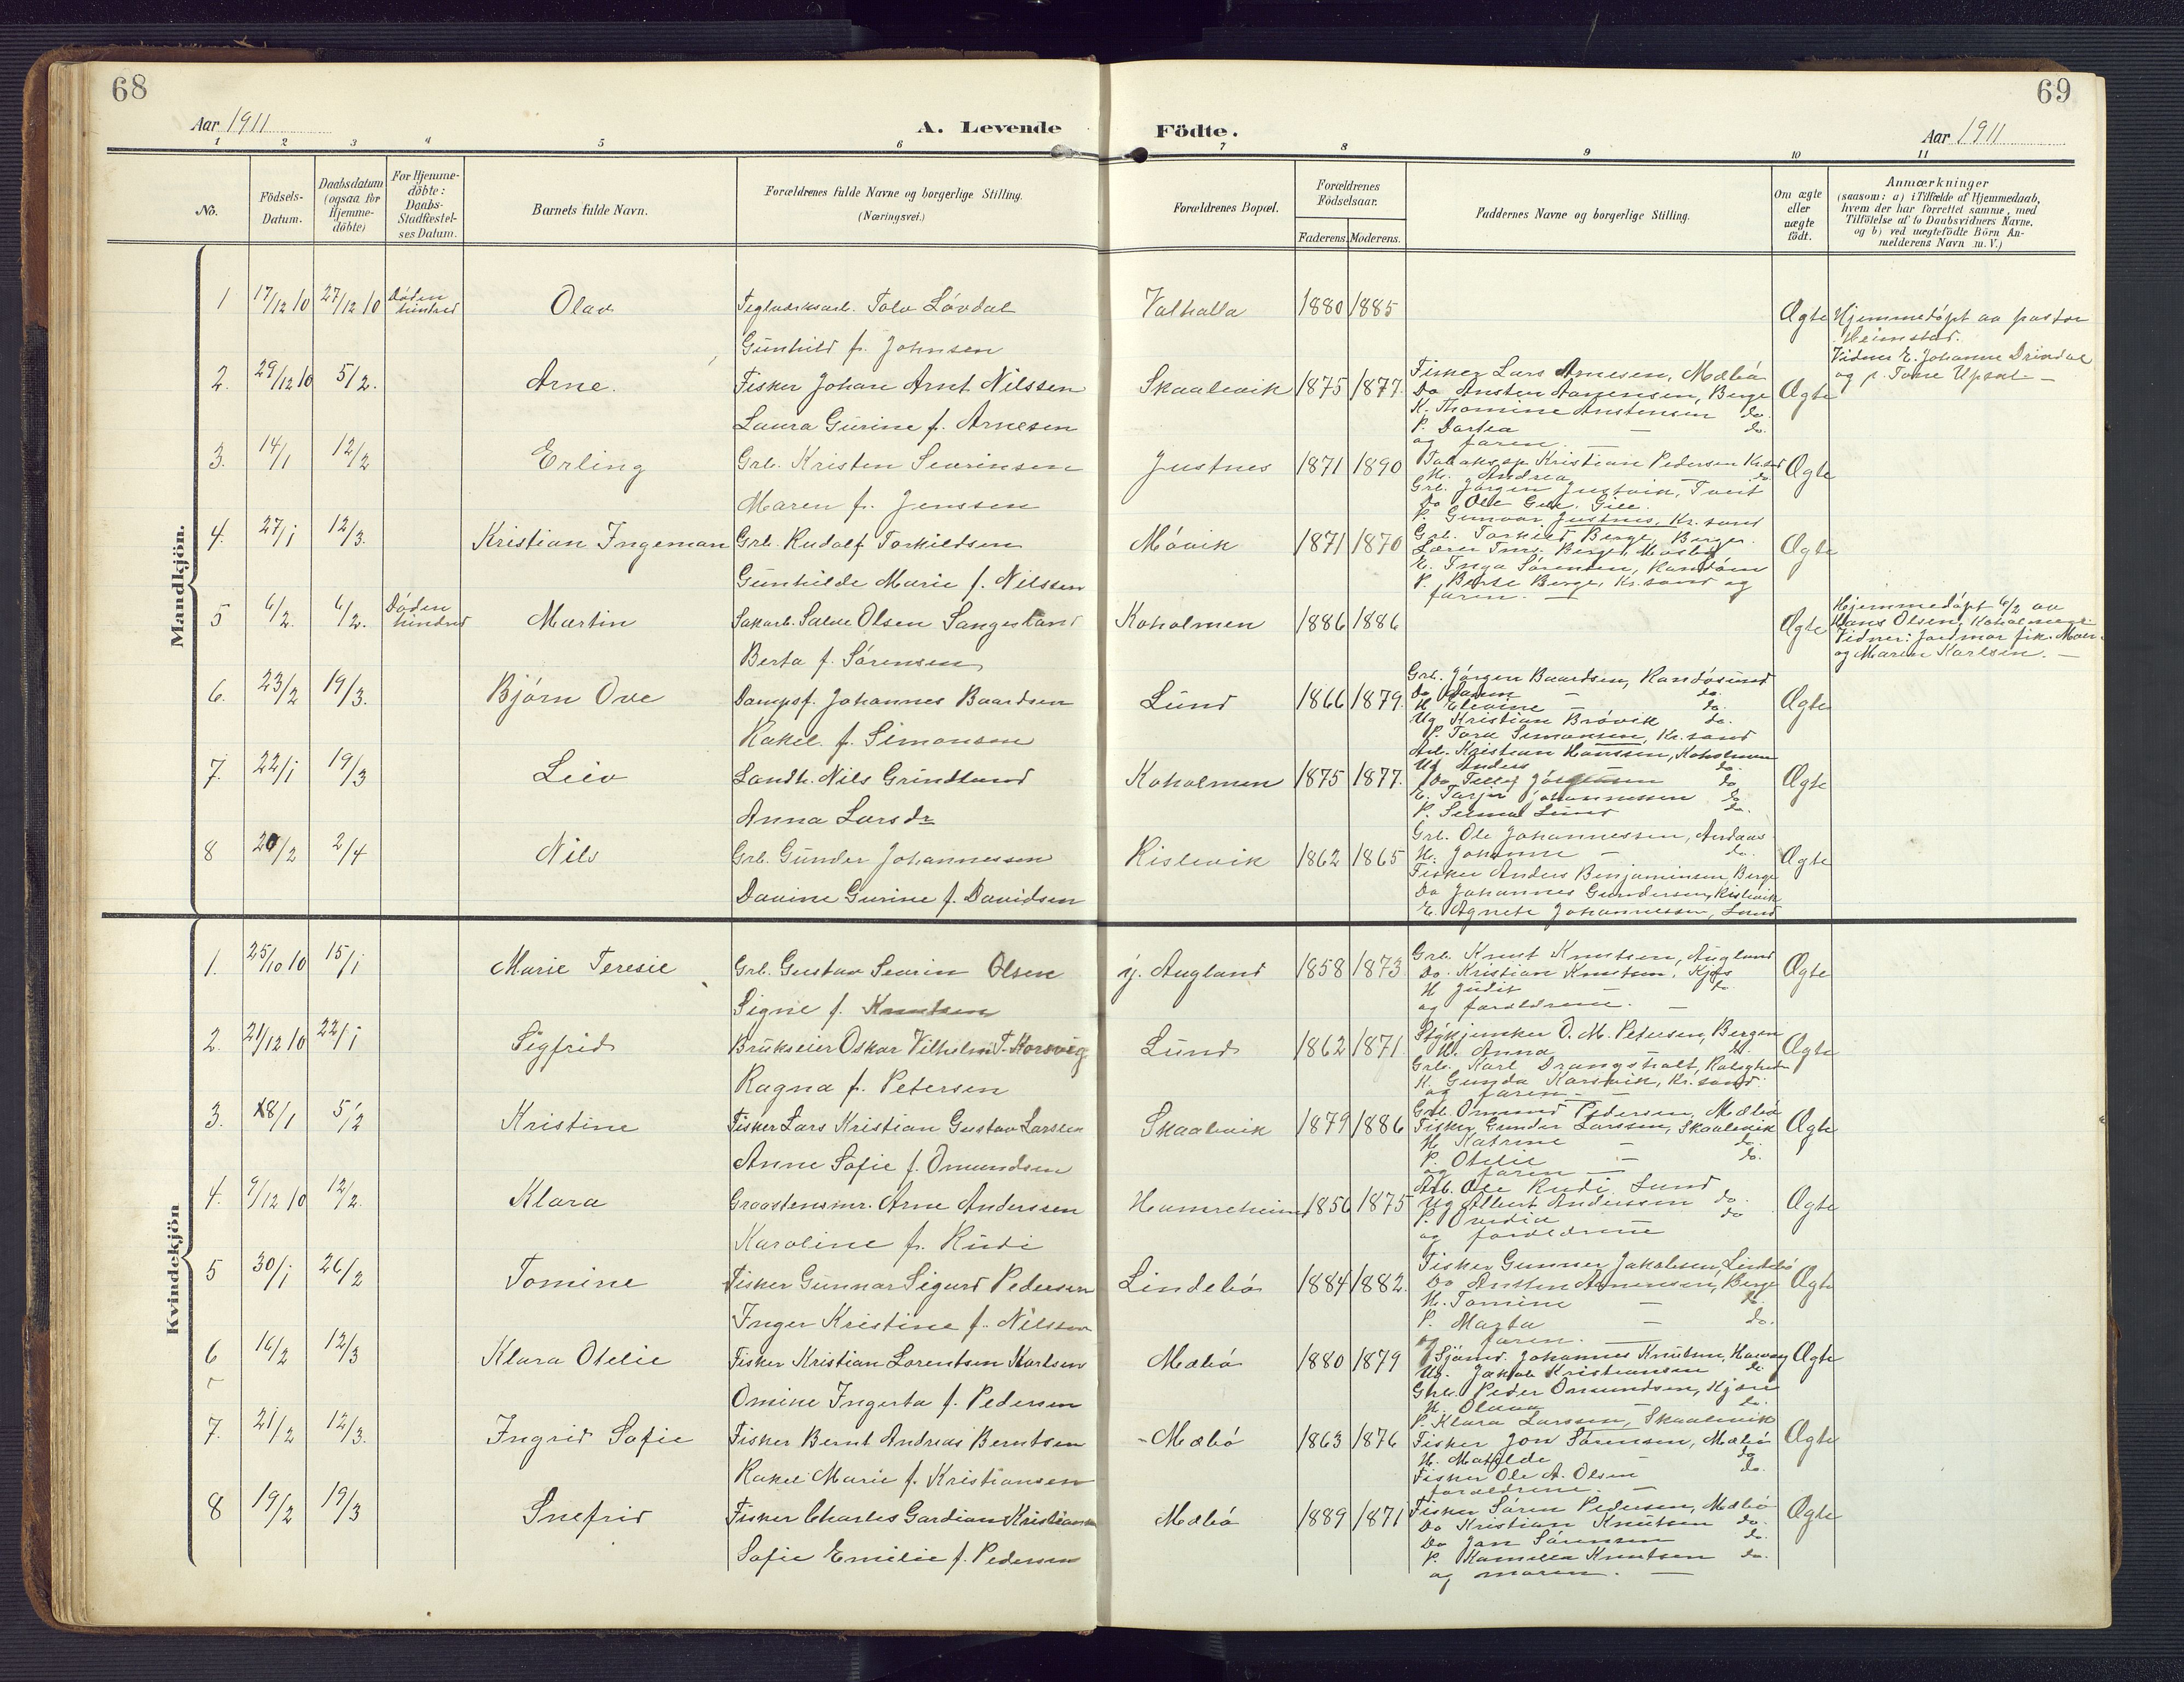 68
69
Aar 1911
A. Levende Födte.
Aar 1911
1 2 3 4 5 6 7 8 9 10 11
No.
Födsels-Datum.
Daabsdatum (ogsaa for Hjemme-döbte)
For Hjemme-döbte: Daabs-Stadfæstel-ses Datum.
Barnets fulde Navn.
Forældrenes fulde Navne og borgerlige Stilling.
(Næringsvei.)
Forældrenes Bopæl.
Forældrenes Födselsaar.
Faderens. Moderens.
Faddernes Navne og borgerlige Stilling.
Om ægte eller uægte födt.
Anmærkninger
(saasom: a) i Tilfælde af Hjemmedaab,
hvem der har forrettet samme, med
Tilföielse af to Daabsvidners Navne.
og b) ved uægtefödte Börn An-
melderens Navn m. V.)
Mandkjön.
1 17/12 10 27/12 10 Döden hindred Olav Teglverksarb. Tolv Lövdal Valhalla 1880 1885 Ægte Hjemmedöpt av pastor
Heimstad.
Gunhild f. Johnsen
Vidner E. Johanne Drivdal
og p. Tone Upsal —
2. 29/12 10 5/2. Arne. Fisker Johan Arnt Nilssen Skaalevik 1875 1877. Fisker Lars Arnesen, Mæbö Ægte
Do Ansten Aanensen, Berge
K. Thomine Anstensen do.
Laura Gurine f. Arnesen
P. Dortea — do.
og faren. —
3. 14/1 12/2 Erling Grb. Kristen Severinsen Justnes 1871 1890 Kristian Pedersen Kr.sand Ægte
H. Andrea do
Grb. Jörgen Justvik, Tveit
Do Ole Gill.
Maren f. Jenssen
P. Gunvor Justnes, Kr.sand
4. 27/1 12/3. Kristian Ingeman Grb. Rudolf Torkildsen Mövik 1871 1870 Grb. Torkild Berge, Berge. Ægte
Lærer Berge, Mosby
E. Inga Sörensen, Randöen
Gunhilde Marie f. Nilssen
P. Berge, Kr.sand og
faren. —
5 6/2. 6/2. Döden hindred Martin Sakarb. Salve Olsen Sangesland Koholmen 1886 1886 Ægte Hjemmedöpt 6/2 av
Hans Olsen, Koholmen.
Vidner: Jordmor frk. Moen
og Maren Karlsen. —
Berta f. Sörensen
6. 23/2 19/3. Björn Ove Dampsf. Johannes Baardsen Lund 1866 1879. Grb. Jörgen Baardsen, Randösund Ægte
H. Elevine — do.
Ug Kristian Brövik do.
Rakel f. Simonsen
P. Tora Simonsen, Kr.sand
7. 22/1 19/3 Leiv Landh. Nils Grindland Koholmen 1875 1877. Arb. Kristian Hanssen, Koholmen Ægte
Ug Anders do.
E. Johannessen do
Anna Larsdr
P. Selma Lund do.
8 20/2 2/4 Nils Grb. Gunder Johannessen Kislevik 1862 1865 Grb. Ole Johannessen, Andaas Ægte
H. Johanne — do.
Fisker Anders Benjaminsen, Berge
Do Johannes Gundersen, Kislevik
Davine Gurine f. Davidsen
E. Agnete Johannessen, Lund
Kvindekjön
1. 25/10 10 15/1 Marie Teresie Grb. Gustav Severin Olsen y. Augland 1858 1873 Grb. Knut Knutsen, Augland Ægte
Do. Kristian Knutsen, Kjos
H Judit do.
Signe f. Knutsen
og forældrene. —
2. 21/12 10 22/1 Sigfrid Brukseier Oskar Vilhelm T. Korsvig Lund 1862 1871. Stykjunker O. M. Petersen, Bergen Ægte
H. Anna — do.
Grb. Karl Drangsholt,
K. Gunda Karsvik, Kr.sand
Ragna f. Petersen
og faren. —
3. 8/1 5/2 Kristine Fisker Lars Kristian Gustav Larssen Skaalevik 1879 1886 Grb. Omund Pedersen, Mæbö Ægte
Fisker Gunder Larssen, Skaalevik
H Katrine — do.
P. Otelie — do.
Anne Sofie f. Omundsen
og faren —
4. 9/12 10 12/2. Klara Graastensmr. Arne Anderssen Hamreheim 1856 1875 Arb. Ole Rudi Lund Ægte
Ug Albert Andersen do.
P. Ovedia do
Karoline f. Rudi
og forældrene
5 30/1 26/2 Tomine Fisker Gunnar Sigurd Pedersen Lindebö 1884 1882. Fisker Gunner Jakobsen, Lindebö Ægte
Do Ansten Aanensen, Berge
H. Tomine — do.
Inger Kristine f. Nilssen
P. Marta — do.
og faren. —
6 16/2 12/3 Klara Otelie Fisker Kristian Lorentsen Karlsen Mæbö 1880 1879 Sjömd. Johannes Knutsen, Ægte
Ug. Jakob Kristiansen do.
Grb. Peder Omundsen, Kjære
H. Olava do.
Omine Ingerta f. Pedersen
P. Klara Larssen, Skaalevik
7. 21/2 12/3. Ingrid Sofie Fisker Bernt Andreas Berntsen Mæbö 1863 1876 Fisker Jon Sörensen, Mæbö Ægte
H. Matilde do
Fisker Ole A. Olsen do.
Rakel Marie f. Kristiansen
forældrene. —
8 19/2 19/3 Snefrid Fisker Charles Gardian Kristiansen Mæbö 1889 1871 Fisker Sören Pedersen, Mæbö Ægte
Do Kristian Knutsen do.
Do Jon Sörensen do.
P. Kamilla Knutsen do.
Sofie Emilie f. Pedersen
og moren. —